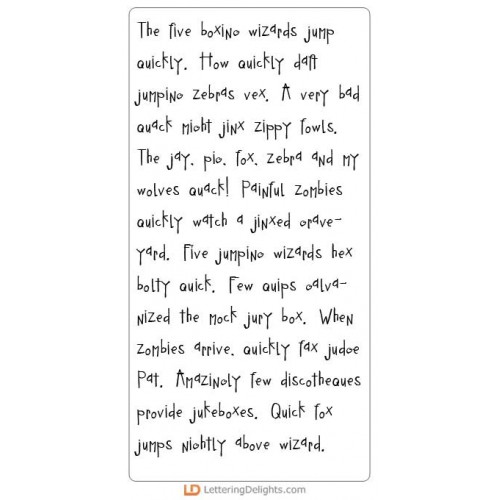 The five boxing wizards jump
quickly. How quickly daft
jumping zebras vex. A very bad
quack might jinx zippy fowls.
The jay, pig, fox, zebra and my
wolves quack! Painful zombies
quickly watch a jinxed grave-
yard. Five jumping wizards hex
bolty quick. Few quips galva-
nized the mock jury box. When
zombies arrive, quickly fax judge
Pat. Amazingly few discotheques
provide jukeboxes. Quick fox
jumps nightly above wizard.
LD LetteringDelights.com